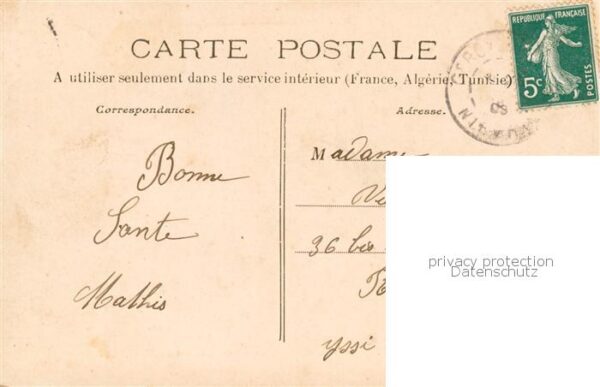 CARTE POSTALE
A utiliser seulement dans le service intérieur (France, Algérie, Tunisie)
RÉPUBLIQUE FRANÇAISE
5c
POSTES
09
Correspondance.
Bonne
Sante
Mathis
Adresse.
Madame
36 bis
yssi
privacy protection
Datenschutz